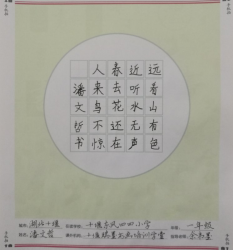 远看山有色
近听水无声
春去花还在
人来鸟不惊
潘文哲书
湖北十堰 十堰东风四四小学 一年级
潘文哲